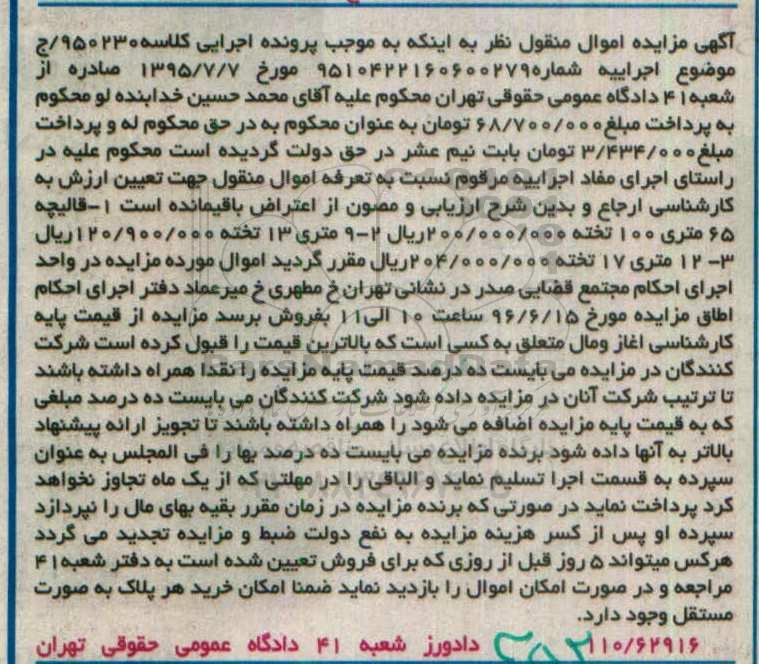 آگهی مزایده اموال منقول نظر به اینکه به موجب پرونده اجرایی کلاسه۹۵۰۲۳۰/ج
موضوع اجراییه شماره۹۵۱۰۴۲۲۱۶۰۶۰۰۲۷۹ مورخ ۱۳۹۵/۷/۷ صادره از
شعبه۴۱ دادگاه عمومی حقوقی تهران محکوم علیه آقای محمد حسین خدابنده لو محکوم
به پرداخت مبلغ۶۸/۷۰۰/۰۰۰ تومان به عنوان محکوم به در حق محکوم له و پرداخت
مبلغ۳/۴۳۴/۰۰۰ تومان بابت نیم عشر در حق دولت گردیده است محکوم علیه در
راستای اجرای مفاد اجراییه مرقوم نسبت به تعرفه اموال منقول جهت تعیین ارزش به
کارشناسی ارجاع و بدین شرح ارزیابی و مصون از اعتراض باقیمانده است ۱-قالیچه
۶۵ متری ۱۰۰ تخته ۲۰۰/۰۰۰/۰۰۰ریال ۲-۹ متری ۱۳ تخته ۱۲۰/۹۰۰/۰۰۰ریال
۳- ۱۲ متری ۱۷ تخته ۲۰۴/۰۰۰/۰۰۰ریال مقرر گردید اموال مورده مزایده در واحد
اجرای احکام مجتمع قضایی صدر در نشانی تهران خ مطهری خ میرعماد دفتر اجرای احکام
اطاق مزایده مورخ ۹۶/۶/۱۵ ساعت ۱۰ الی۱۱ بفروش برسد مزایده از قیمت پایه
کارشناسی اغاز ومال متعلق به کسی است که بالاترین قیمت را قبول کرده است شرکت
کنندگان در مزایده می بایست ده درصد قیمت پایه مزایده را نقدا همراه داشته باشند
تا ترتیب شرکت آنان در مزایده داده شود شرکت کنندگان می بایست ده درصد مبلغی
که به قیمت پایه مزایده اضافه می شود را همراه داشته باشند تا تجویز ارائه پیشنهاد
بالاتر به آنها داده شود برنده مزایده می بایست ده درصد بها را فی المجلس به عنوان
سپرده به قسمت اجرا تسلیم نماید و الباقی را در مهلتی که از یک ماه تجاوز نخواهد
کرد پرداخت نماید در صورتی که برنده مزایده در زمان مقرر بقیه بهای مال را نپردازد
سپرده او پس از کسر هزینه مزایده به نفع دولت ضبط و مزایده تجدید می گردد
هرکس میتواند ۵ روز قبل از روزی که برای فروش تعیین شده است به دفتر شعبه۴۱
مراجعه و در صورت امکان اموال را بازدید نماید ضمنا امکان خرید هر پلاک به صورت
مستقل وجود دارد.
۱۱۰/۶۲۹۱۶ دادورز شعبه ۴۱ دادگاه عمومی حقوقی تهران